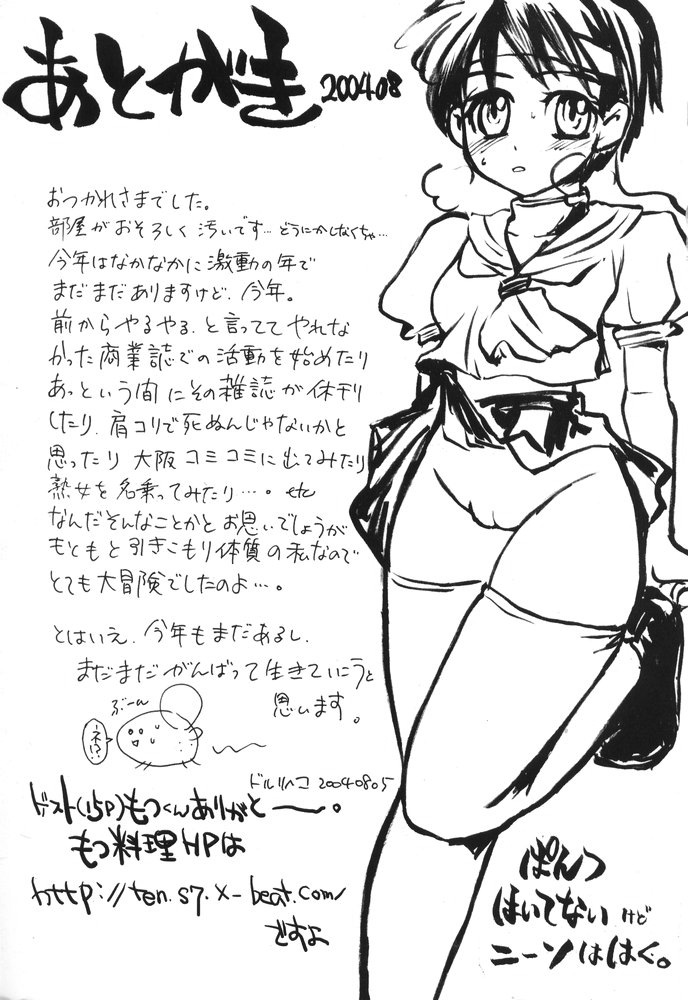 あとがき 2004.08
おつかれさまでした。
部屋がおそろしく汚いです… どうにかしなくちゃ…
今年はなかなかに激動の年で
まだまだありますけど、今年。
前からやるやる、と言ってて やれな
かった商業誌での活動を始めたり
あっという間にその雑誌が休刊
したり、肩コリで死ぬんじゃないかと
思ったり 大阪コミコミに出てみたり
熟女を名乗ってみたり…。etc
なんだそんなことかとお思いでしょうが
もともと引きこもり体質の私なので
とても大冒険でしたのよ…。
とはいえ、今年もまだあるし、
まだまだがんばって生きていこうと
思います。
ぶーん
ネ!?
ドルリヘコ 20040805
ゲスト(15P)もつくんありがとー。
もつ料理HPは
http://ten.s7.x-beat.com/
ですよ
ぱんつ
はいてない けど
ニーソははく。